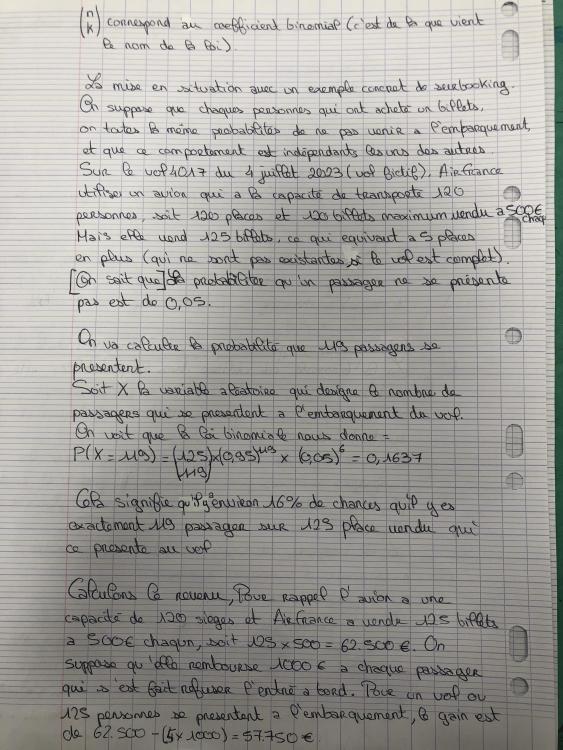 (n k) correspond au coefficient binomial (c'est de là que vient
le nom de la loi).
La mise en situation avec un exemple concret de surbooking.
On suppose que chaques personnes qui ont acheté un billets,
on toutes la même probabilités de ne pas venir a l'embarquement,
et que ce comportement est indépendants les uns des autres.
Sur le vol 4017 du 4 juillet 2023 (vol fictif), Airfrance
utilise un avion qui a la capacité de transporte 120
personnes, soit 120 places et 120 billets maximum vendu a 500€ chaq
Mais elle vend 125 billets, ce qui equivaut a 5 places
en plus (qui ne sont pas existantes, si le vol est complet).
[On sait que] La probabilitée qu'un passager ne se présente
pas est de 0,05.
On va calculer la probabilité que 119 passagers se
présentent.
Soit X la variable aléatoire qui designe le nombre de
passagers qui se presentent a l'embarquement du vol.
On voit que la loi binomiale nous donne =
P(X = 119) = (125 119) × (0,95)^119 × (0,05)^6 = 0,1637
Cela signifie qu'il y a environ 16% de chances qu'il y es
exactement 119 passager sur 125 place vendu qui
ce presente au vol
Calculons le revenu, Pour rappel l'avion a une
capacité de 120 sieges et Airfrance a vendu 125 billets
a 500€ chaqun, soit 125 × 500 = 62.500 €. On
suppose qu'elle rembourse 1000 € a chaque passager
qui s'est fait refuser l'entré a bord. Pour un vol ou
125 personnes se presentent a l'embarquement, le gain est
de 62.500 - (5 × 1000) = 57.750 €.